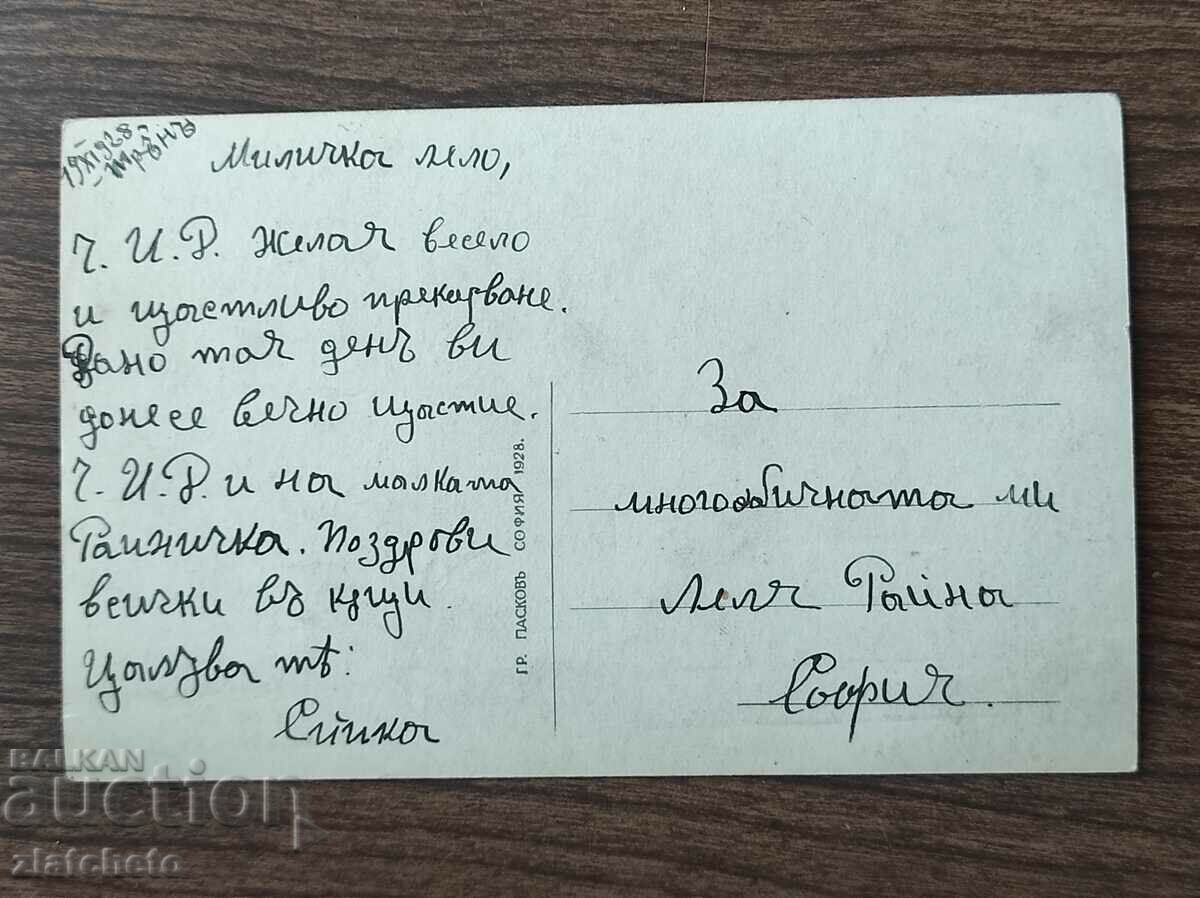 19 XI 928.
Трънъ
Миличка лельо,
Ч. И. Д. Желая весело
и щастливо прекарване.
Дано тоя денъ ви
донесе вечно щастие.
Ч. И. Д. и на малката
Раиничка. Поздрави
всички въ кѫщи.
Цалува тѣ:
ГР. ПАСКОВЪ СОФИЯ 1928.
За
многообичната ми
Леля Райна
София.
BALKAN
auction
zlatcheto